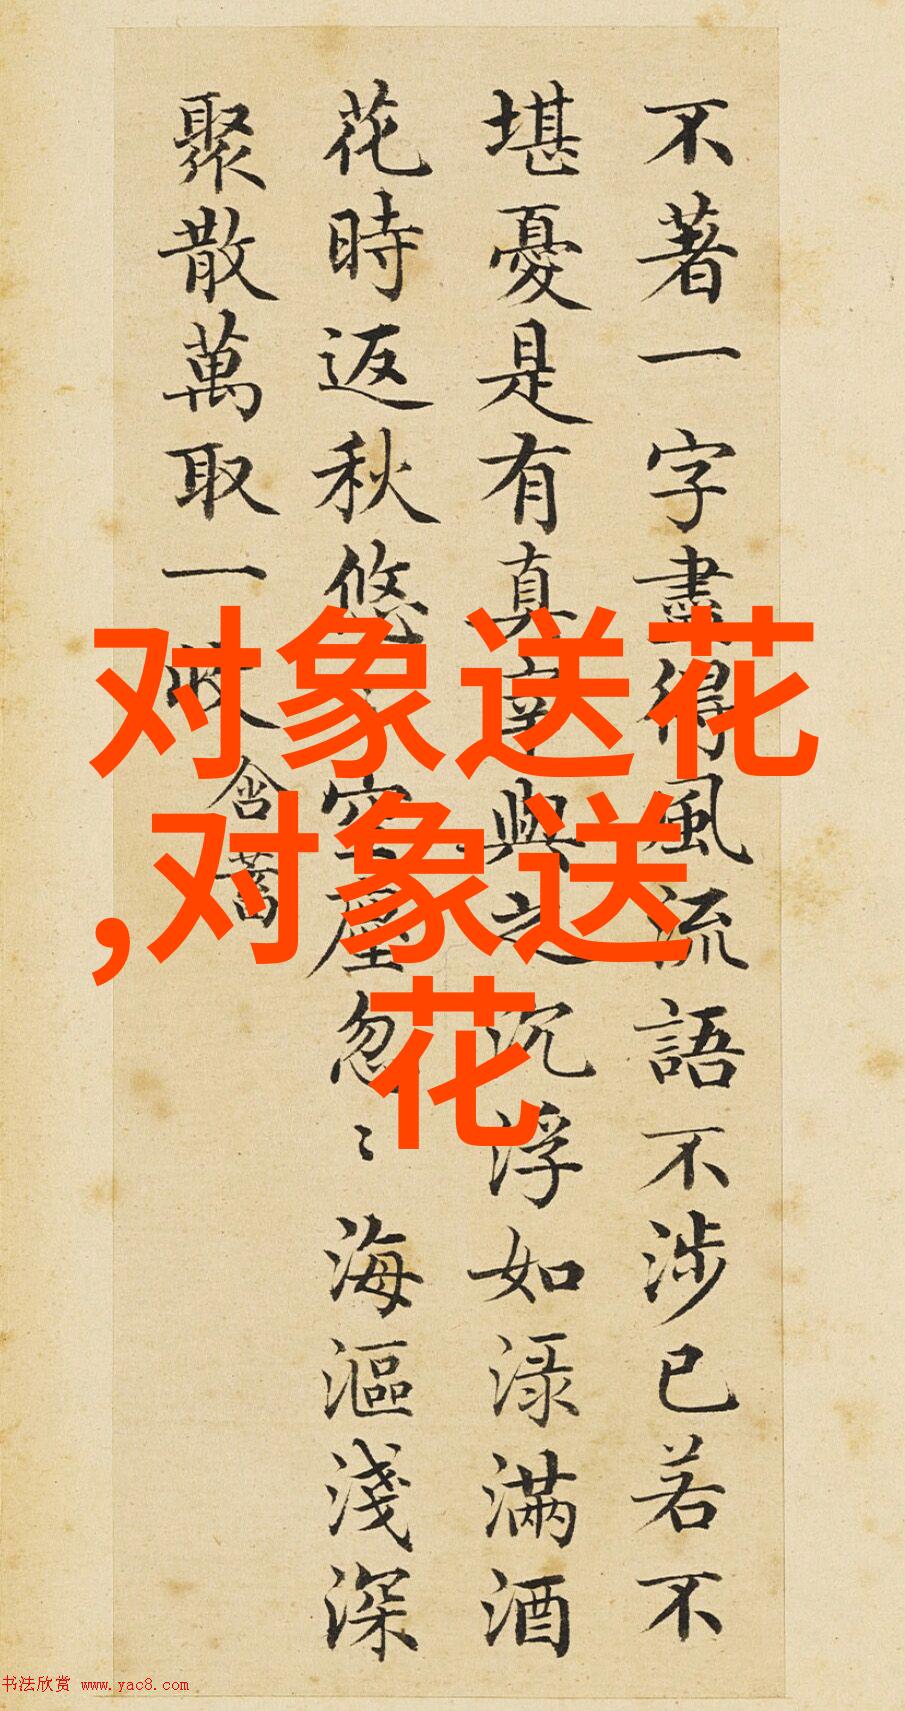 不著一字盡得風流語不涉已若不
堪憂是有真宰與之沉浮如渌滿酒
花時返秋悠〻空塵忽〻海漚淺深
聚散萬取一收
含蓄
对象送花
,对象送
花
书法欣赏 www.yac8.com